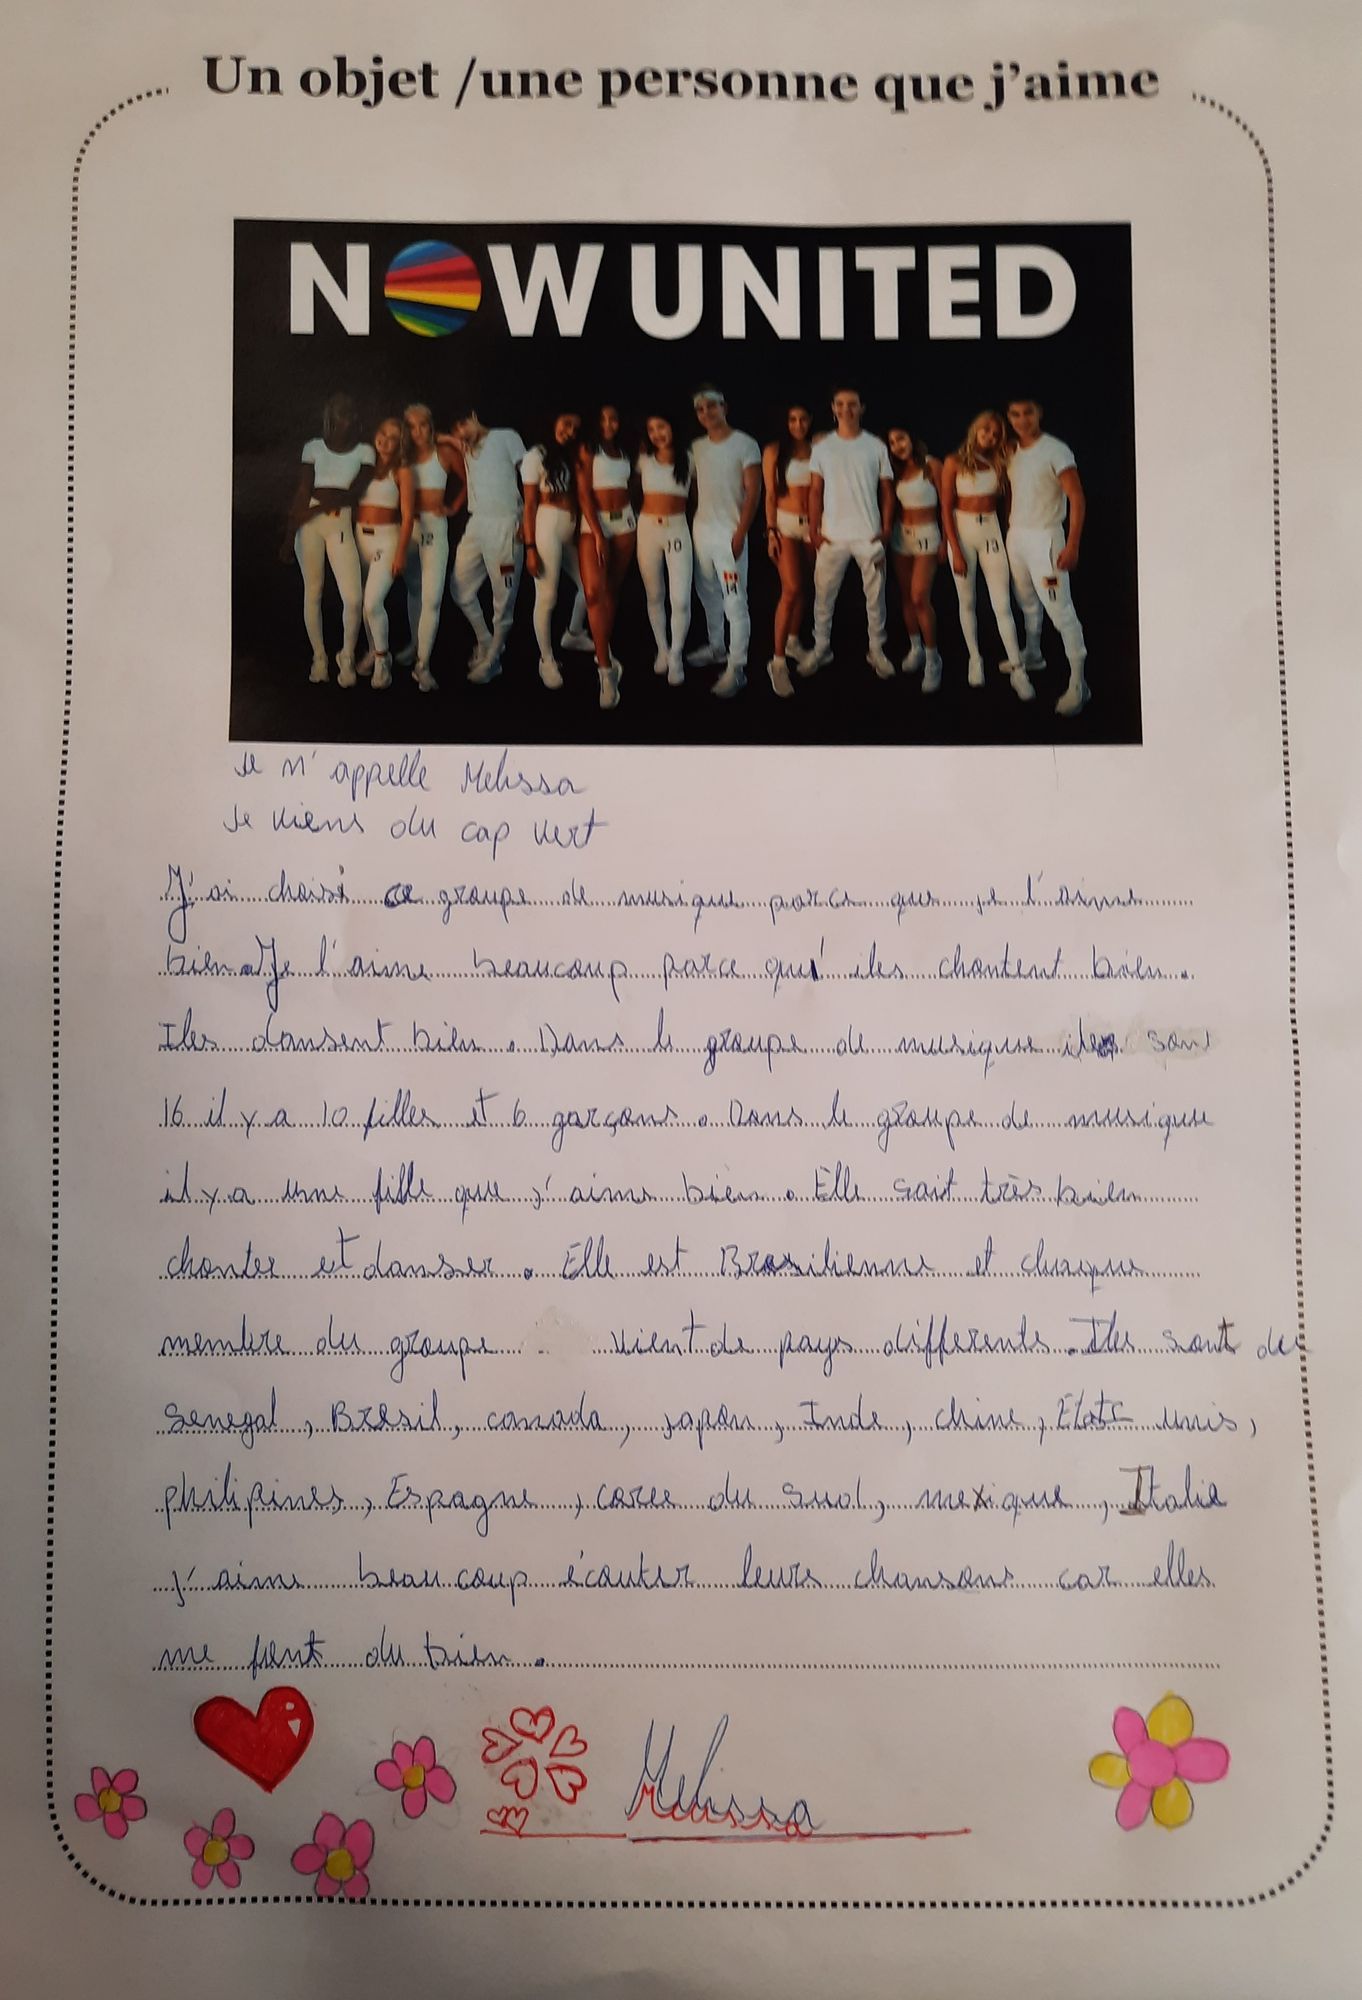 Un objet /une personne que j'aime
NOW UNITED
1 5 12 8 10 14 11 13
Je m'appelle Melissa
Je viens du cap vert
J'ai choisi ce groupe de musique parce que je l'aime
bien. Je l'aime beaucoup parce qu'iles chantent bien.
Iles dansent bien. Dans le groupe de musique iles sont
16 il y a 10 filles et 6 garçons. Dans le groupe de musique
il y a une fille que j'aime bien. Elle sait très bien
chanter et danser. Elle est Bresilienne et chaque
membre du groupe vient de pays differents. Iles sont de
Senegal, Bresil, canada, japon, Inde, chine, Etats unis,
philipines, Espagne, coree du sud, mexique, Italie
j'aime beaucoup écouter leurs chansons car elles
me font du bien.
Melissa